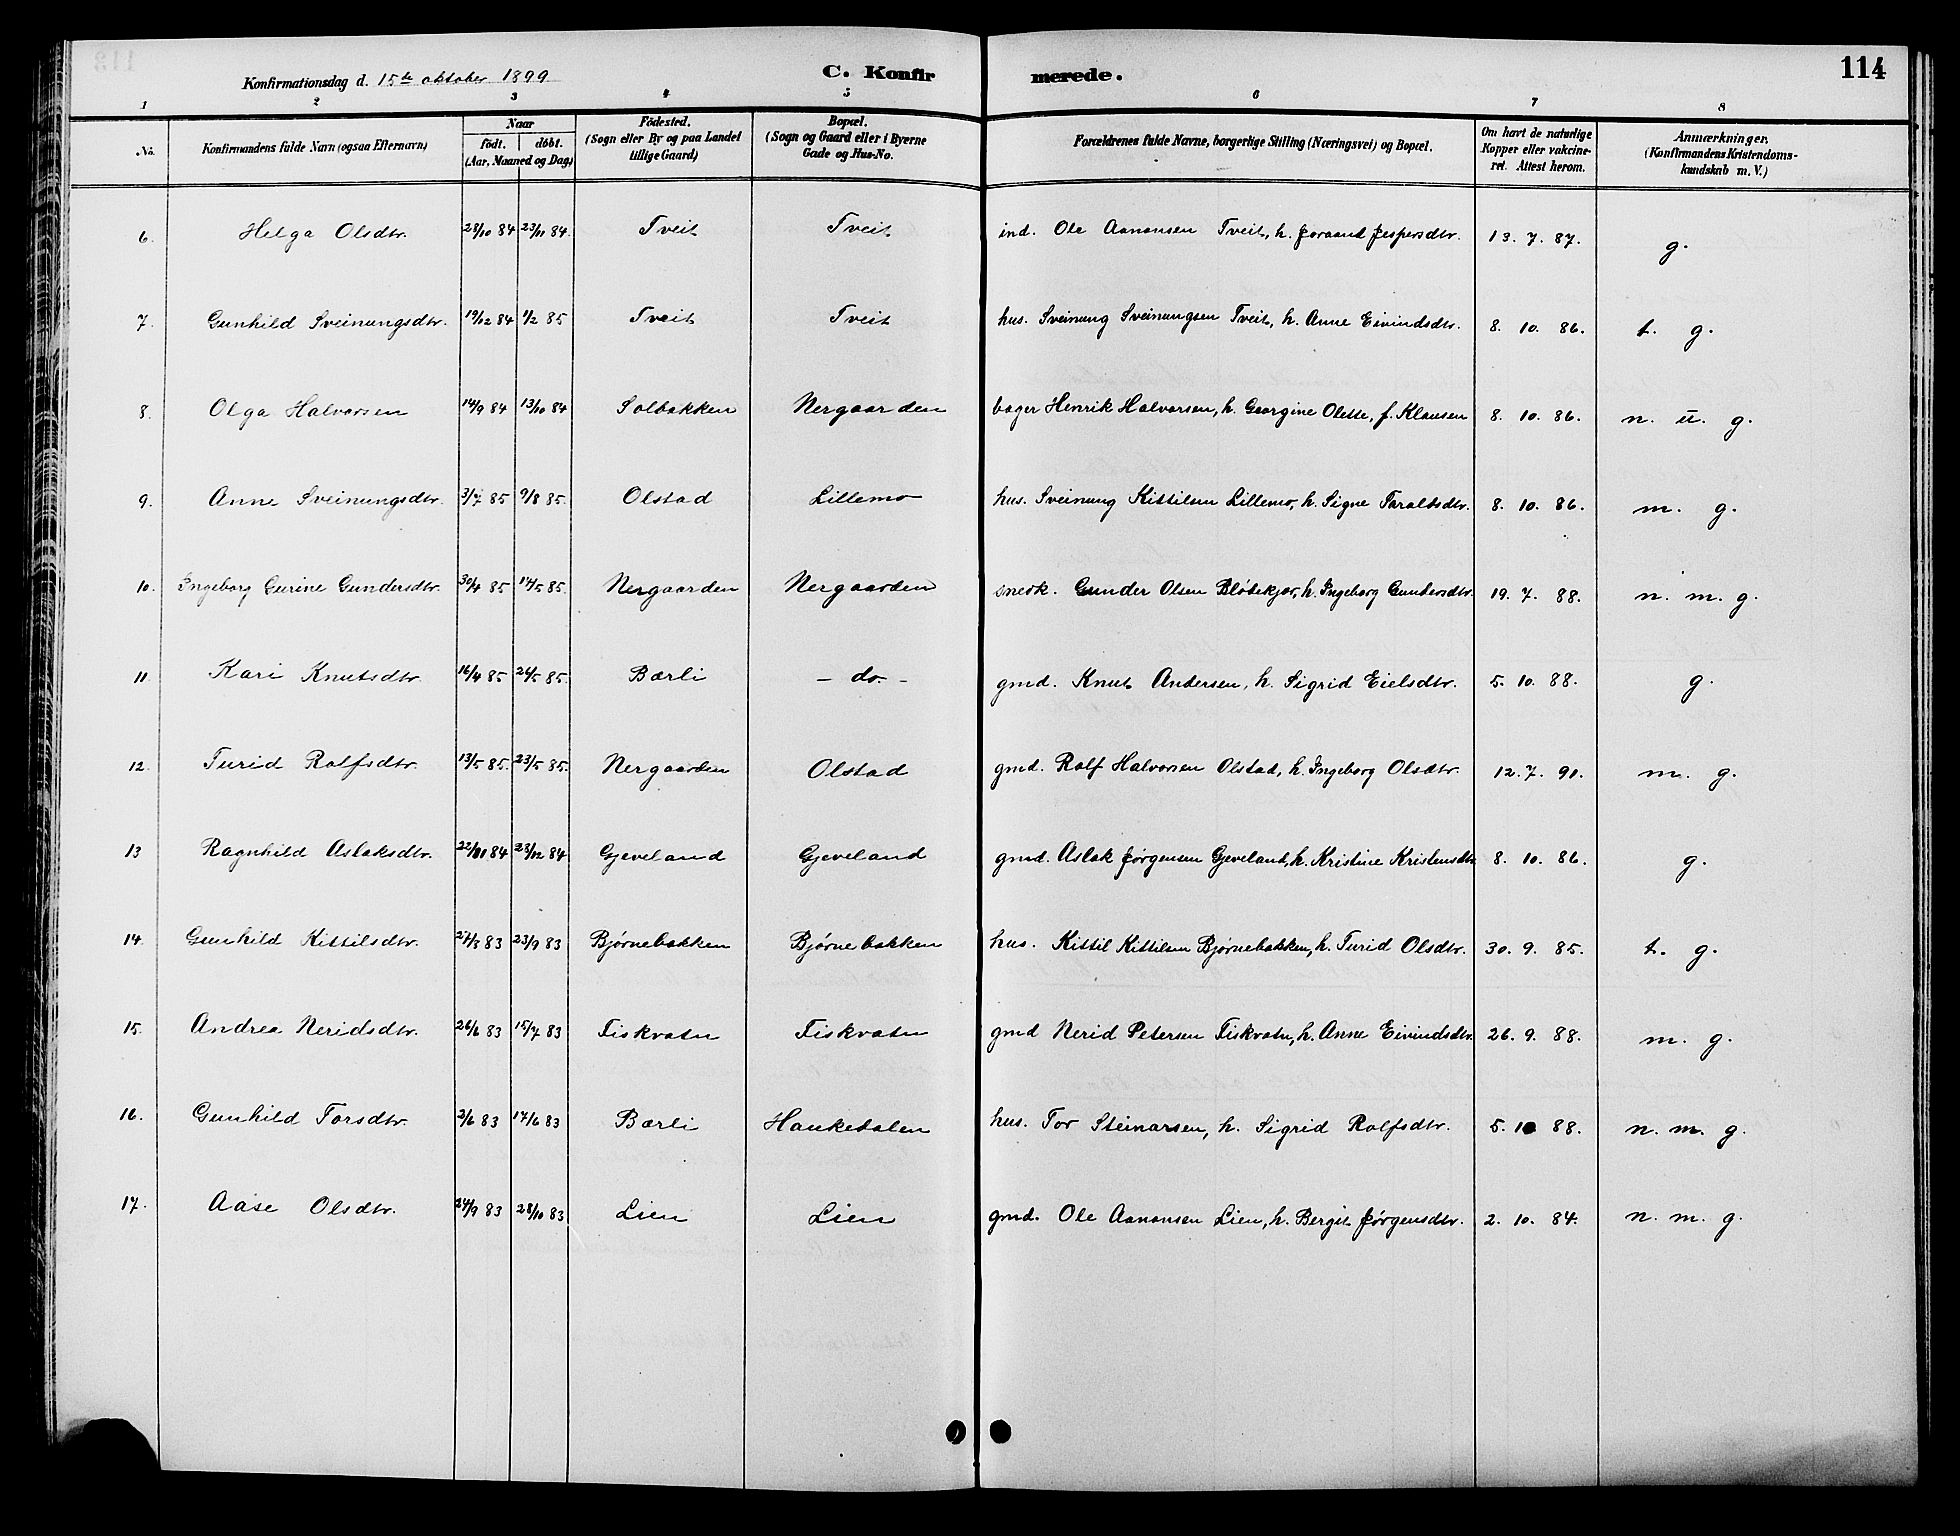 Konfirmationsdag d. 15de oktober 1899 C. Konfirmerede. 114
1 2 3 4 5 6 7 8
No. Konfirmandens fulde Navn (ogsaa Efternavn) Naar födt. döbt. (Aar, Maaned og Dag) Födested. (Sogn eller By og paa Landet tillige Gaard) Bopæl. (Sogn og Gaard eller i Byerne Gade og Hus-No. Forældrenes fulde Navne, borgerlige Stilling (Næringsvei) og Bopæl. Om havt de naturlige Kopper eller vakcineret. Attest herom. Anmærkninger, (Konfirmandens Kristendomskundskab m. V.)
6. Helga Olsdtr. 28/10 84 23/11 84. Tveit Tveit ind. Ole Aanonsen Tveit, h. Joraand Jespersdtr. 13. 7. 87. g.
7. Gunhild Sveinungsdtr. 19/12 84 1/2 85 Tveit Tveit hus. Sveinung Sveinungsen Tveit, h. Anne Eivindsdtr. 8. 10. 86. t. g.
8. Olga Halvorsen 14/9 84 13/10 84 Solbakken Nergaarden bager Henrik Halvorsen, h. Georgine Olette, f. Klausen 8. 10. 86. n. u. g.
9. Anne Sveinungsdtr. 3/7 85 9/8 85. Olstad Lillemo hus. Sveinung Kittilsen Lillemo, h. Signe Taraldsdtr. 8. 10. 86. m. g.
10. Ingeborg Gurine Gundersdtr. 30/4 85 14/5 85. Nergaarden Nergaarden snedk. Gunder Olsen Blödekjær, h. Ingeborg Gundersdtr. 19. 7. 88. n. m. g.
11. Kari Knutsdtr. 16/4 85 24/5 85. Bærli – do. – gmd. Knut Andersen, h. Sigrid Eielsdtr. 5. 10. 88. g.
12. Turid Rolfsdtr. 13/5 85. 23/5 85. Nergaarden Olstad gmd. Rolf Halvorsen Olstad, h. Ingeborg Olsdtr. 12. 7. 91. m. g.
13 Ragnhild Aslaksdtr. 22/11 84 28/12 84 Gjeveland Gjeveland gmd. Aslak Jørgensen Gjeveland, h. Kristine Kristensdtr. 8. 10. 86. g.
14. Gunhild Kittilsdtr. 27/8 83 23/9 83 Bjørnebakken Bjørnebakken hus. Kittil Kittilsen Bjørnebakken, h. Turid Olsdtr. 30. 9. 85. t. g.
15. Andrea Neridsdtr. 26/6 83 15/7 83 Fiskvatn Fiskvatn gmd Nerid Petersen Fiskvatn, h. Anne Eivindsdtr. 26. 9. 88. m. g.
16. Gunhild Torsdtr. 2/6 83 17/6 83 Bærli Haukedalen hus. Tor Steinarsen, h. Sigrid Rolfsdtr. 5. 10 88. n. m. g.
17. Aase Olsdtr. 24/9 83 28/10 83 Lien Lien gmd. Ole Aanonsen Lien, h. Bergit Jørgensdtr. 2. 10. 84. n. m. g.